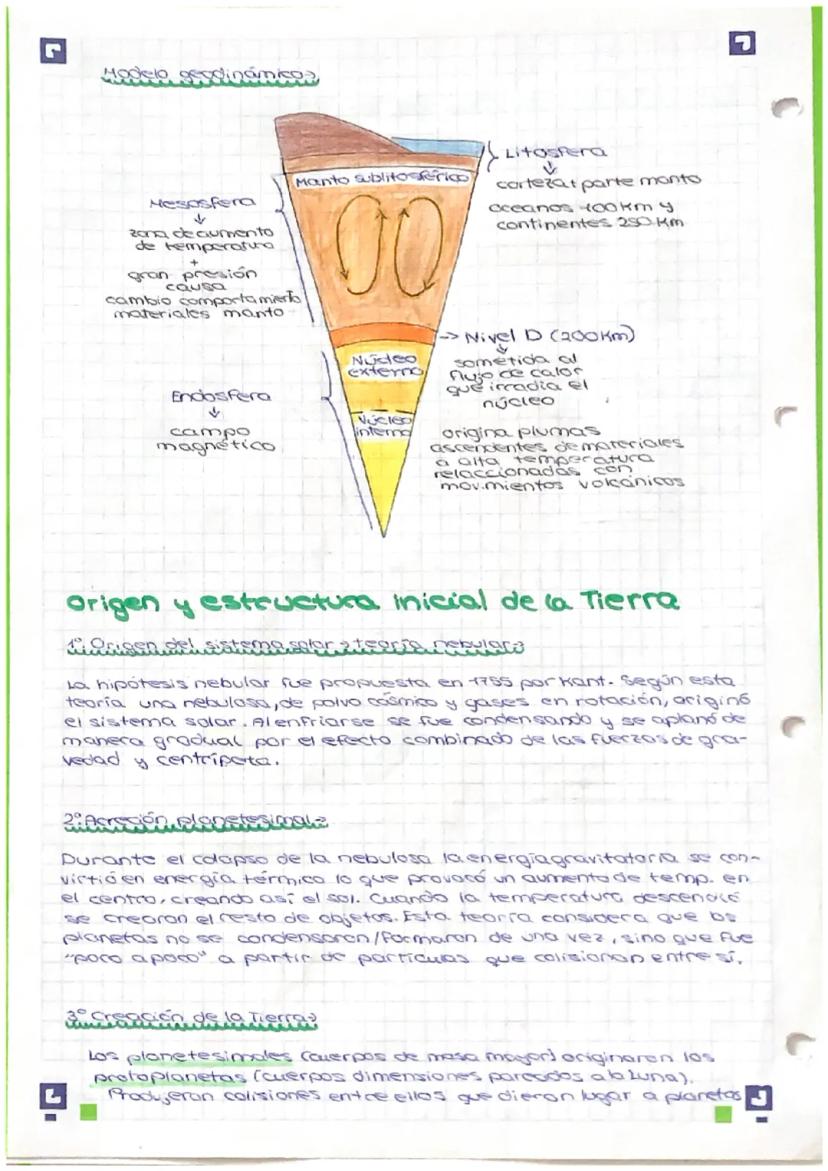 Modelo geodinámico→
Litosfera
corteza + parte manto
oceanos 100 km y
continentes 250 km
Manto sublitosférico
Mesosfera
zona de aumento
de temperatura
+
gran presión
causa
cambio comportamiento
materiales manto
-> Nivel D (200 km)
sometida al
flujo de calor
que irradia el
núcleo
origina plumas
ascendentes de materiales
a alta temperatura
relaccionadas con
movimientos volcánicos
Núcleo
externo
Endosfera
campo
magnético
Núcleo
interno
Origen y estructura inicial de la Tierra
1º Origen del sistema solar → teoría nebular→
La hipótesis nebular fue propuesta en 1755 por Kant. Según esta
teoría una nebulosa, de polvo cósmico y gases en rotación, originó
el sistema solar. Al enfriarse se fue condensando y se aplanó de
manera gradual por el efecto combinado de las fuerzas de gra-
vedad y centrípeta.
2º Acreción planetesimal→
Durante el colapso de la nebulosa la energía gravitatoria se con-
virtió en energía térmica lo que provocó un aumento de temp. en
el centro, creando así el sol. Cuando la temperatura descendió
se crearon el resto de objetos. Esta teoría considera que los
planetas no se condensaron/formaron de una vez, sino que fue
"poco a poco" a partir de partículas que colisionan entre sí.
3º Creación de la Tierra→
Los planetesimales (cuerpos de masa mayor) originaron los
protoplanetas (cuerpos dimensiones parecidas a la Luna).
Produjeron colisiones entre ellos que dieron lugar a planetas